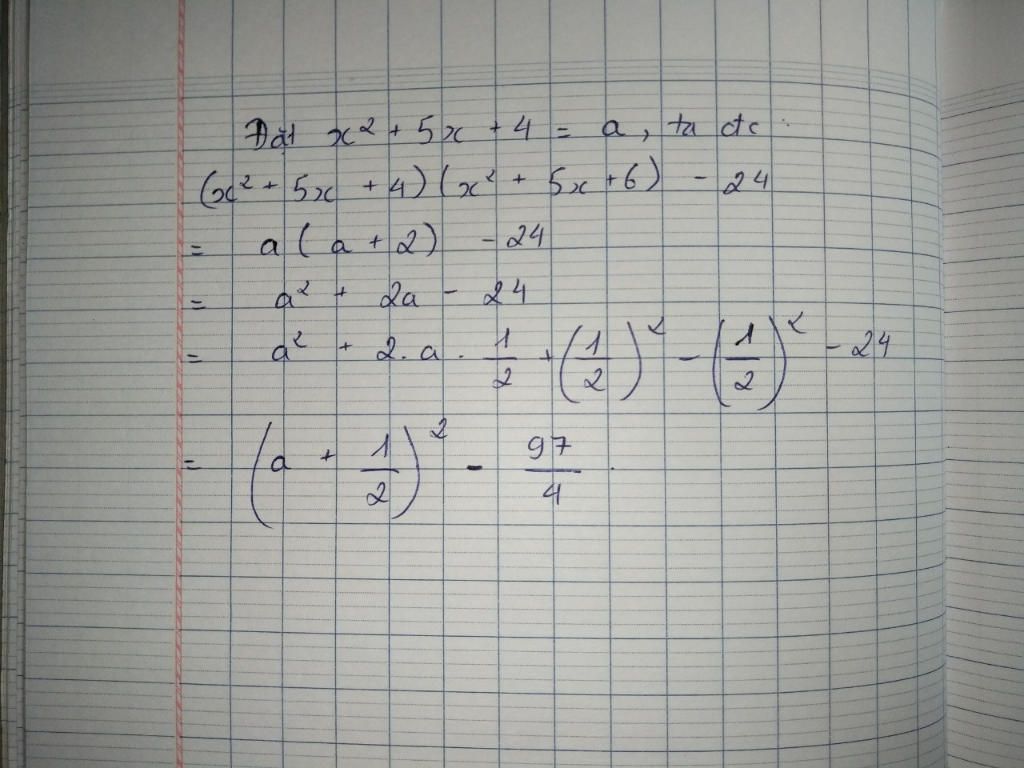 Đặt x² + 5x + 4 = a, ta đc :
(x² + 5x + 4)(x² + 5x + 6) - 24
= a(a + 2) - 24
= a² + 2a - 24
= a² + 2.a.1/2 + (1/2)² - (1/2)² - 24
= (a + 1/2)² - 97/4.